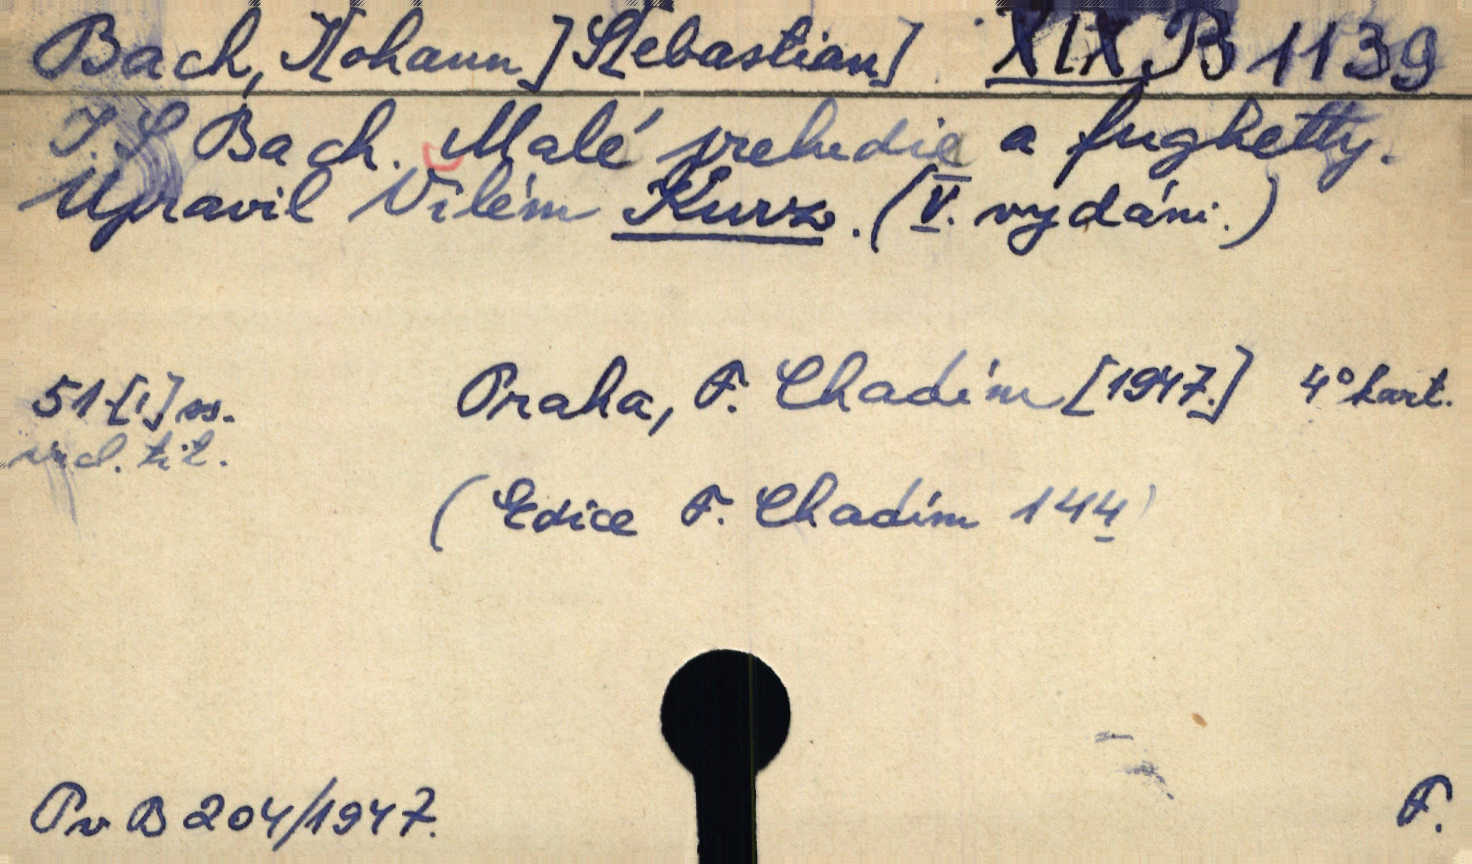 Bach, J[ohann] S[ebastian] XIX B 1139
J. S. Bach. Malé preludie a fughetty.
Upravil Vilém Kurz. (V. vydání.)
51-[1] ss. Praha, F. Chadím [1947.] 4° kart.
vč. tit.
(Edice F. Chadím 144)
Pv B 204/1947. F.